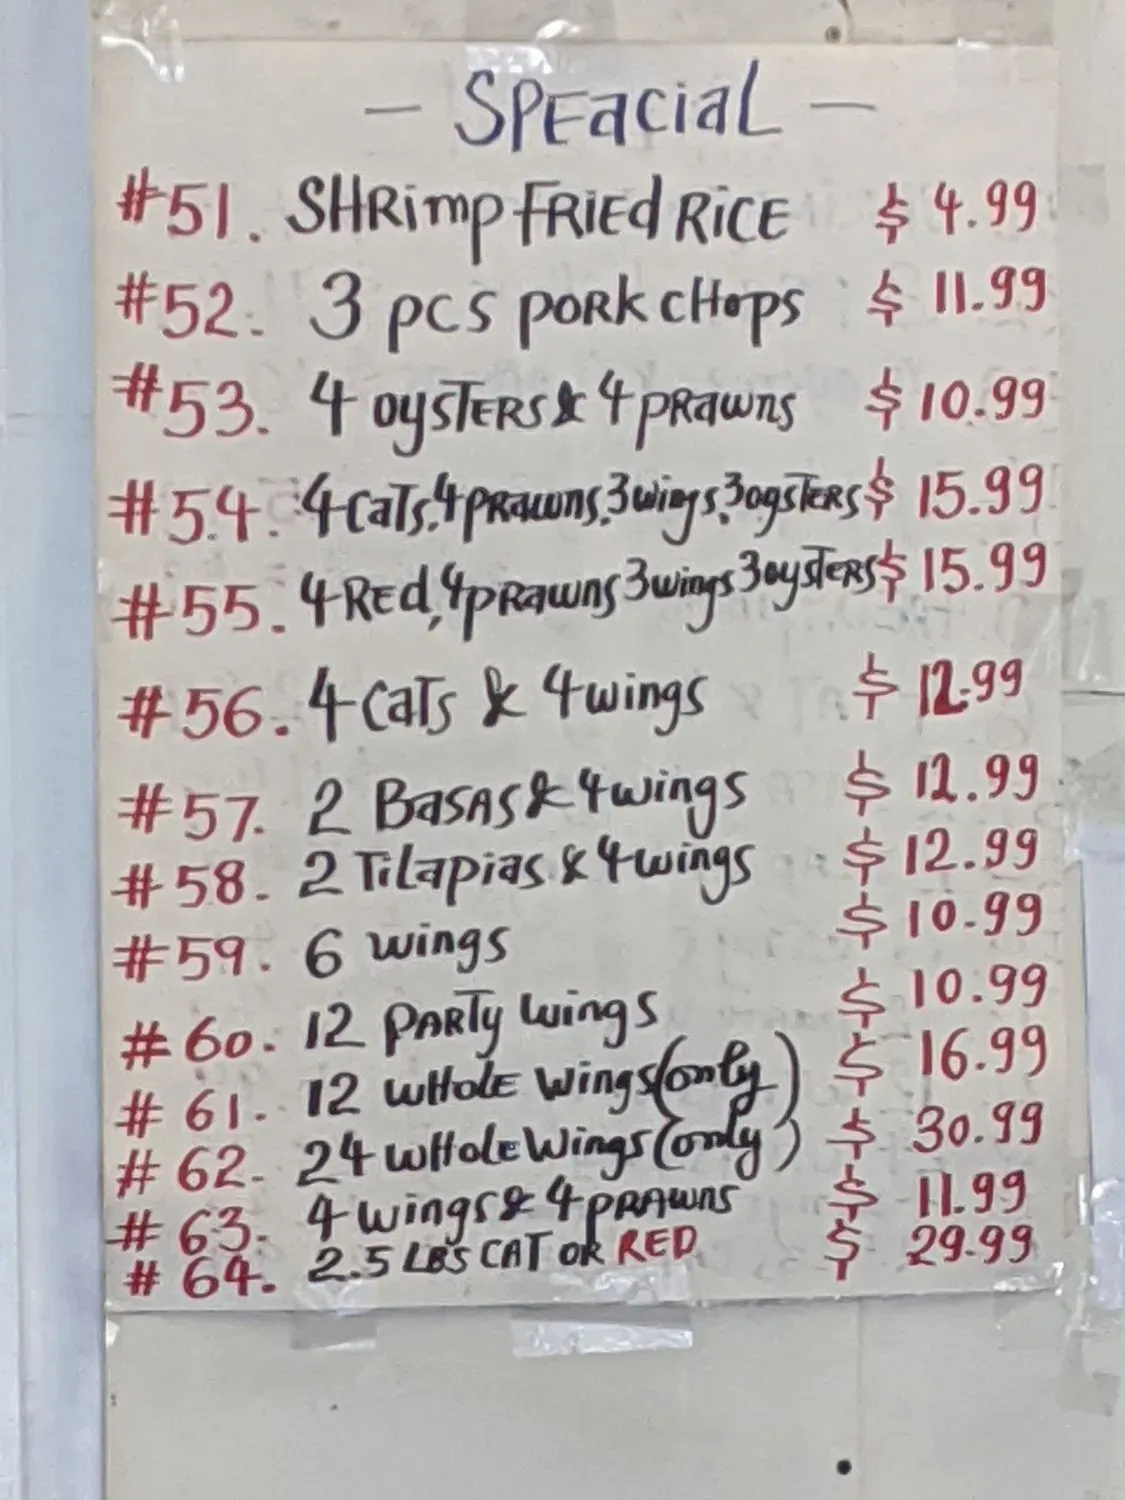 - SPEaciaL -
#51. SHRimp FRiEd RiCE $ 4.99
#52. 3 pcs poRk cHops $ 11.99
#53. 4 oysTERS & 4 pRawns $ 10.99
#54. 4 CaTs, 4 pRawns, 3 wings, 3 oysTERS $ 15.99
#55. 4 REd, 4 pRawns 3 wings 3 oysTERS $ 15.99
#56. 4 CaTs & 4 wings $ 12.99
#57. 2 BasAs & 4 wings $ 12.99
#58. 2 TiLapias & 4 wings $ 12.99
#59. 6 wings $ 10.99
#60. 12 PARTy wings $ 10.99
#61. 12 wHoLE wings (only) $ 16.99
#62. 24 wHoLE wings (only) $ 30.99
#63. 4 wings & 4 pRAwns $ 11.99
#64. 2.5 LBS CAT OR RED $ 29.99